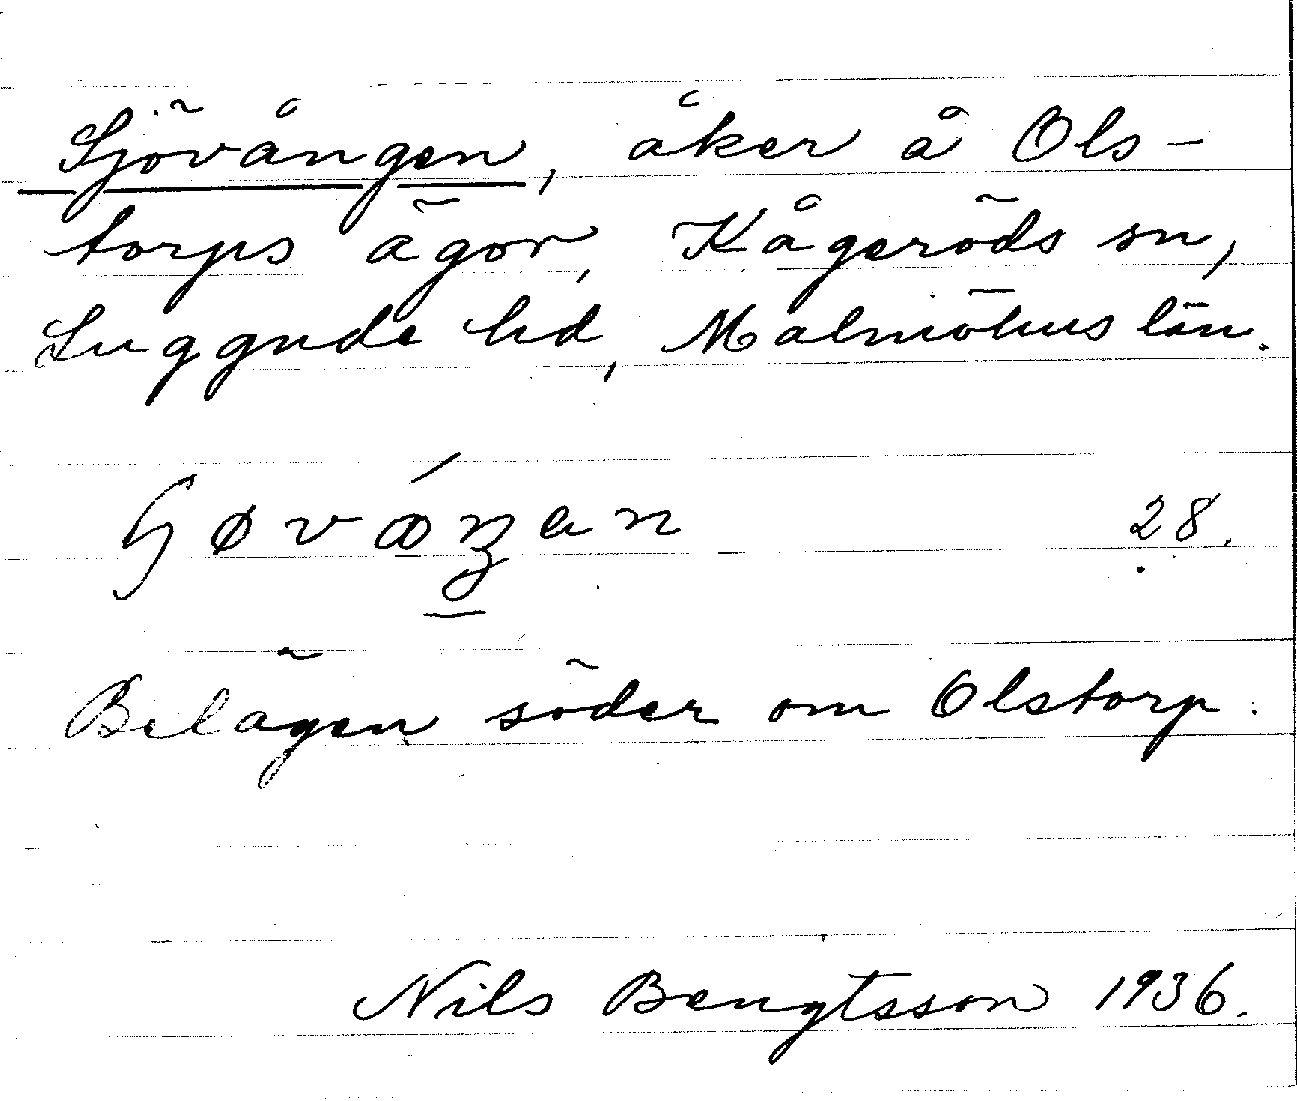 Sjövången, åker å Ols-
torps ägor, Kågeröds sn,
Luggude hd, Malmöhus län.
28.
Belägen söder om Olstorp.
Nils Bengtsson 1936.